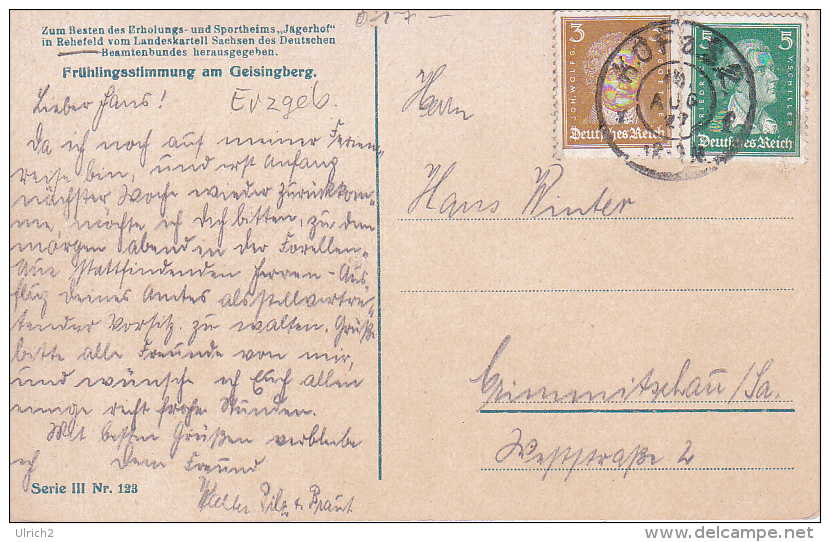 Zum Besten des Erholungs- und Sportheims „Jägerhof"
in Rehefeld vom Landeskartell Sachsen des Deutschen
Beamtenbundes herausgegeben.
Frühlingsstimmung am Geisingberg.
Erzgeb.
Lieber Hans!
Da ich noch auf meiner Ferien-
reise bin, und erst Anfang
nächster Woche wieder zurückkom-
me, möchte ich Dich bitten, zu dem
morgen abend in der Forellen-
Aue stattfindenden Herren-Aus-
flug deines Amtes als stellvertre-
tender Vorsitz. zu walten. Grüße
bitte alle Freunde von mir,
und wünsche ich Euch allen
einige recht frohe Stunden.
Mit besten Grüßen verbleibe
ich Dein Freund
Walter Pilz & Braut
Serie III Nr. 123
3 3
JOH. WOLFG.
Deutsches Reich
5 5
FRIEDR. V. SCHILLER
Deutsches Reich
HOF
AUG
27
Herrn
Hans Winter
Crimmitschau/Sa.
Weststraße 2
Ulrich2
delcampe.net